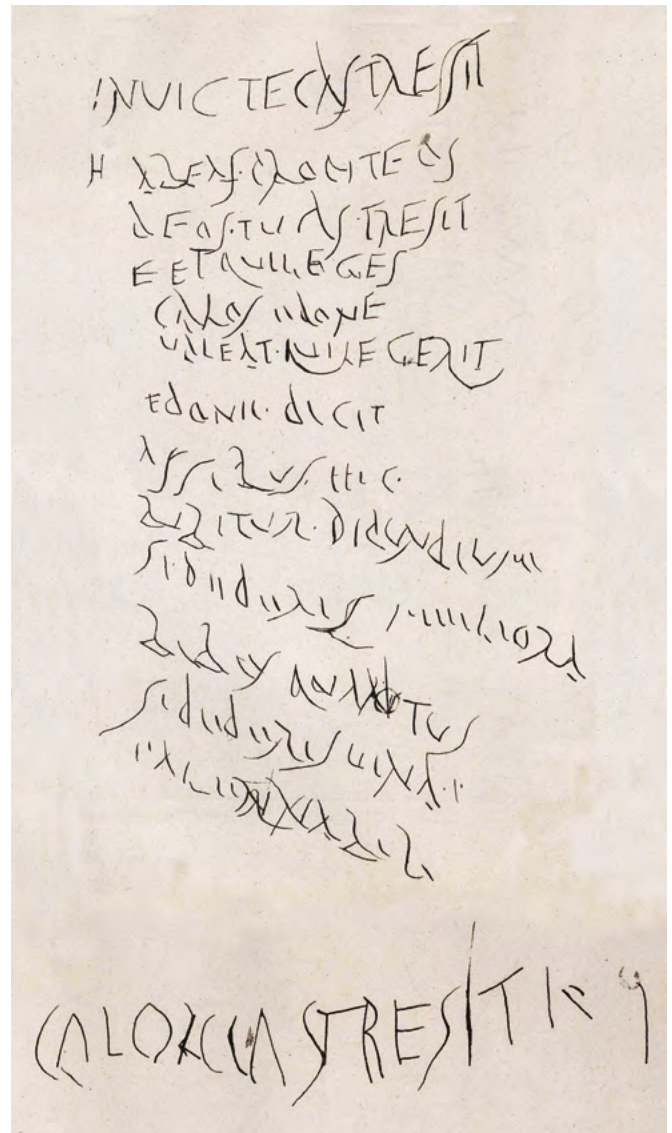 INVICTE CASTRES IT
HABEAS PROPITEOS
DEOS TUOS TRES IT
E ET QUI LEGES
CALOS EDONE
VALEAT QUI LEGERIT
EDONE DICIT
ASSIBUS HIC
BIBITUR DIPUNDIUM
SI DEDERIS MELIORA
BIBES QUATTUS
SI DEDERIS VINA
BIB
CALOS CASTRESIT